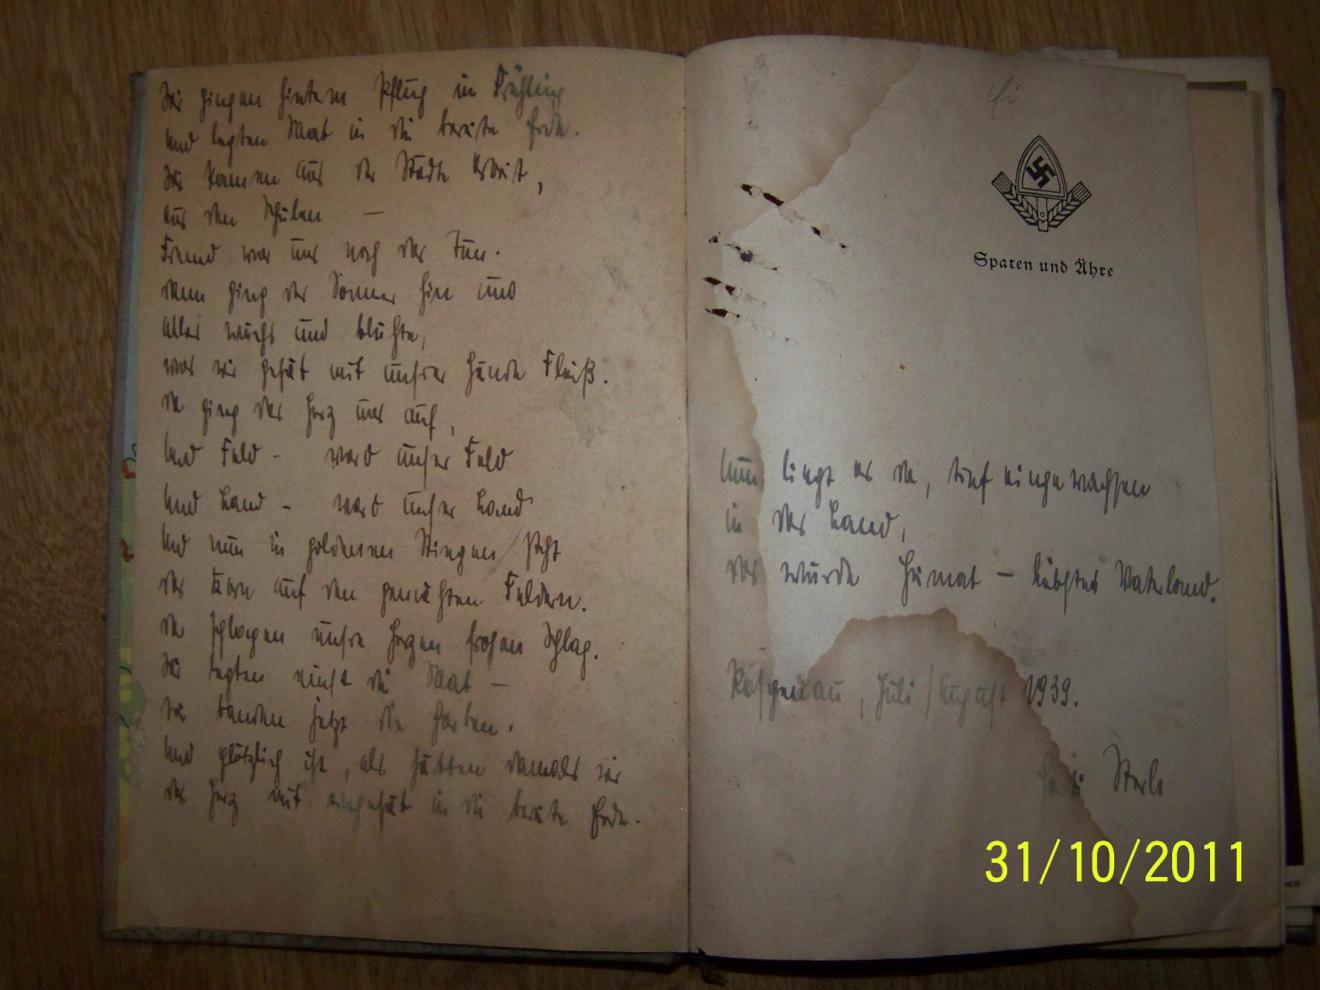 Wir gingen hinterm Pflug im Frühling
und legten Saat in die bereite Erde.
Wir kamen aus der Städte Arbeit,
aus den Schulen —
Fremd war uns noch das Tun.
dann ging der Sommer hin und
alles wuchs und blühte,
was wir gesät mit unsrer Hände Fleiß.
da ging das Herz uns auf,
Und Feld - ward unser Feld
Und Land - ward unser Land
Und nun in goldenen Wiegen steht
das Korn auf den gemähten Feldern.
da schlagen unsre Herzen frohen Schlag.
Wir legten einst die Saat —
wir banden jetzt die Garben.
Und plötzlich ist, als hätten damals wir
das Herz mit eingesät in die bereite Erde.
Spaten und Ähre
Nun liegt es da, tief eingewachsen
in das Land,
das wurde Heimat — liebstes Vaterland.
Juli/August 1939.
31/10/2011